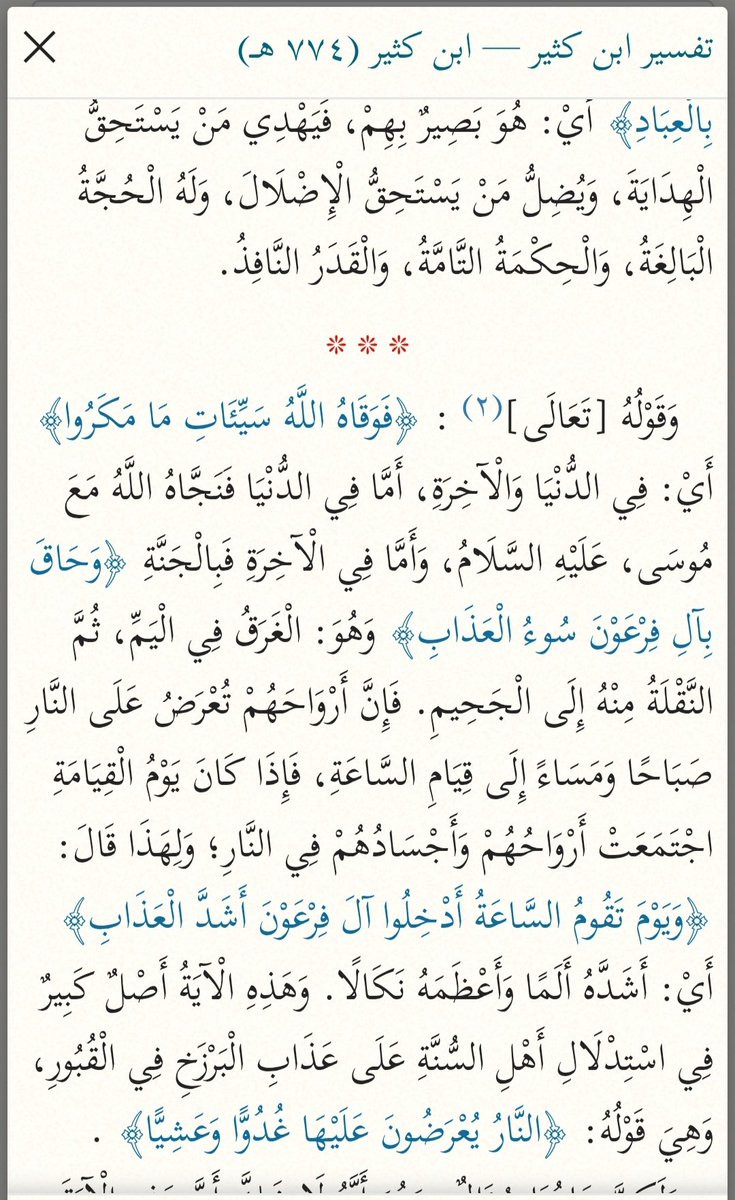 تفسير ابن كثير — ابن كثير (٧٧٤ هـ)
بِالْعِبَادِ﴾ أَيْ: هُوَ بَصِيرٌ بِهِمْ، فَيَهْدِي مَنْ يَسْتَحِقُّ
الْهِدَايَةَ، وَيُضِلُّ مَنْ يَسْتَحِقُّ الْإِضْلَالَ، وَلَهُ الْحُجَّةُ
الْبَالِغَةُ، وَالْحِكْمَةُ التَّامَّةُ، وَالْقَدَرُ النَّافِذُ.
وَقَوْلُهُ [تَعَالَى](٢) : ﴿فَوَقَاهُ اللَّهُ سَيِّئَاتِ مَا مَكَرُوا﴾
أَيْ: فِي الدُّنْيَا وَالْآخِرَةِ، أَمَّا فِي الدُّنْيَا فَنَجَّاهُ اللَّهُ مَعَ
مُوسَى، عَلَيْهِ السَّلَامُ، وَأَمَّا فِي الْآخِرَةِ فَبِالْجَنَّةِ ﴿وَحَاقَ
بِآلِ فِرْعَوْنَ سُوءُ الْعَذَابِ﴾ وَهُوَ: الْغَرَقُ فِي الْيَمِّ، ثُمَّ
النَّقْلَةُ مِنْهُ إِلَى الْجَحِيمِ. فَإِنَّ أَرْوَاحَهُمْ تُعْرَضُ عَلَى النَّارِ
صَبَاحًا وَمَسَاءً إِلَى قِيَامِ السَّاعَةِ، فَإِذَا كَانَ يَوْمُ الْقِيَامَةِ
اجْتَمَعَتْ أَرْوَاحُهُمْ وَأَجْسَادُهُمْ فِي النَّارِ؛ وَلِهَذَا قَالَ:
﴿وَيَوْمَ تَقُومُ السَّاعَةُ أَدْخِلُوا آلَ فِرْعَوْنَ أَشَدَّ الْعَذَابِ﴾
أَيْ: أَشَدَّهُ أَلَمًا وَأَعْظَمَهُ نَكَالًا. وَهَذِهِ الْآيَةُ أَصْلٌ كَبِيرٌ
فِي اسْتِدْلَالِ أَهْلِ السُّنَّةِ عَلَى عَذَابِ الْبَرْزَخِ فِي الْقُبُورِ،
وَهِيَ قَوْلُهُ: ﴿النَّارُ يُعْرَضُونَ عَلَيْهَا غُدُوًّا وَعَشِيًّا﴾ .